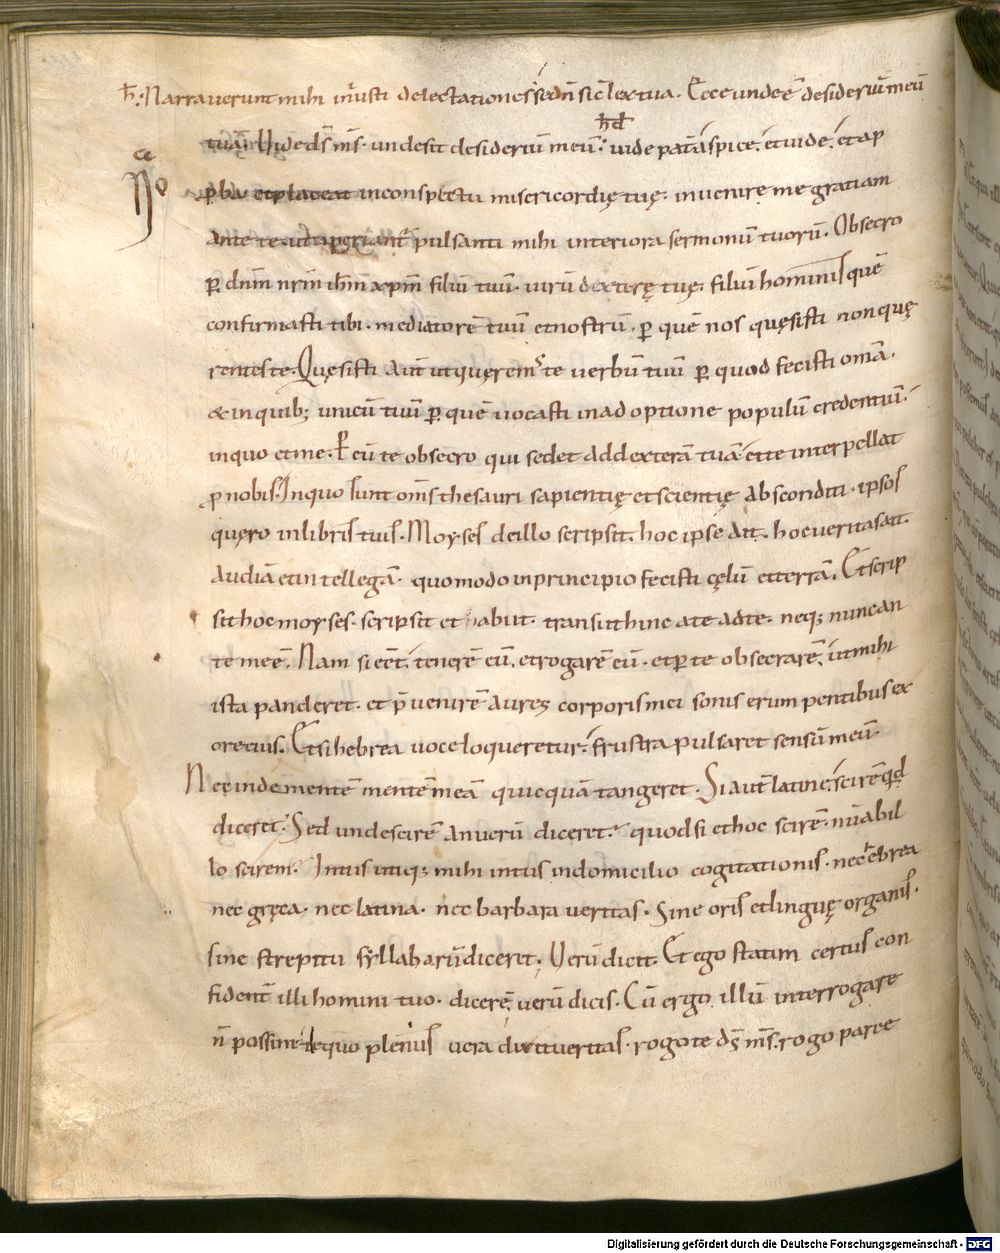 h̄. Narrauerunt mihi iniusti delectationes sed n̄ sic lex tua. Ecce unde ē desideriū meū
hd
tuā. Uide ds̄ ms̄. unde sit desideriū meū. uide pat aspice. et uide. et ap
p̱ba et placeat in conspectu misericordię tuę. inuenire me gratiam
ante te. ut aperiant̄ pulsanti mihi interiora sermonū tuorū. Obsecro
p̱ dn̄m nr̄m ih̄m xp̄m filiū tuū. uirū dexterę tuę. filiū hominis quē
confirmasti tibi. mediatorē tuū et nostrū. p̱ quē nos quęsisti non quę
rentes te. Quęsisti aut̄ ut quęrem̄ te uerbū tuū p̱ quod fecisti om̄a.
& in quib; unicū tuū p̱ quē uocasti in adoptione populū credentiū.
in quo et me. P̱ eū te obsecro qui sedet ad dexterā tuā et te interpellat
p̱ nobis. In quo sunt om̄s thesauri sapientię et scientię absconditi. ipsos
quęro in libris tuis. Moyses de illo scripsit. hoc ipse ait. hoc ueritas ait.
Audiā et intellegā. quomodo in principio fecisti cęlū et terrā. Et scrip
sit hoc moyses. scripsit et abiit. transiit hinc a te ad te. neq; nunc an
te me ē. Nam si eēt. tenerē eū. et rogarē eū. et p̱ te obsecrarē. ut mihi
ista panderet. et p̄uenirē aures corporis mei sonis erumpentibus ex
ore eius. Et si hebrea uoce loqueretur. frustra pulsaret sensū meū.
Nec inde mentē mentē meā quicquā tangeret. Si aut̄ latine. scirē qd̄
diceret. Sed unde scirē an uerū diceret. quod si et hoc scirē. nū ab il
lo scirem. Intus utiq; mihi intus in domicilio cogitationis. nec hebrea
nec gręca. nec latina. nec barbara ueritas. Sine oris et linguę organis.
sine strepitu syllabarū diceret. Uerū dicit. Et ego statim certus con
fident̄ illi homini tuo. dicerē. uerū dicis. Cū ergo illū interrogare
n̄ possim te quo plenus uera dixit ueritas. rogo te ds̄ ms̄. rogo parce